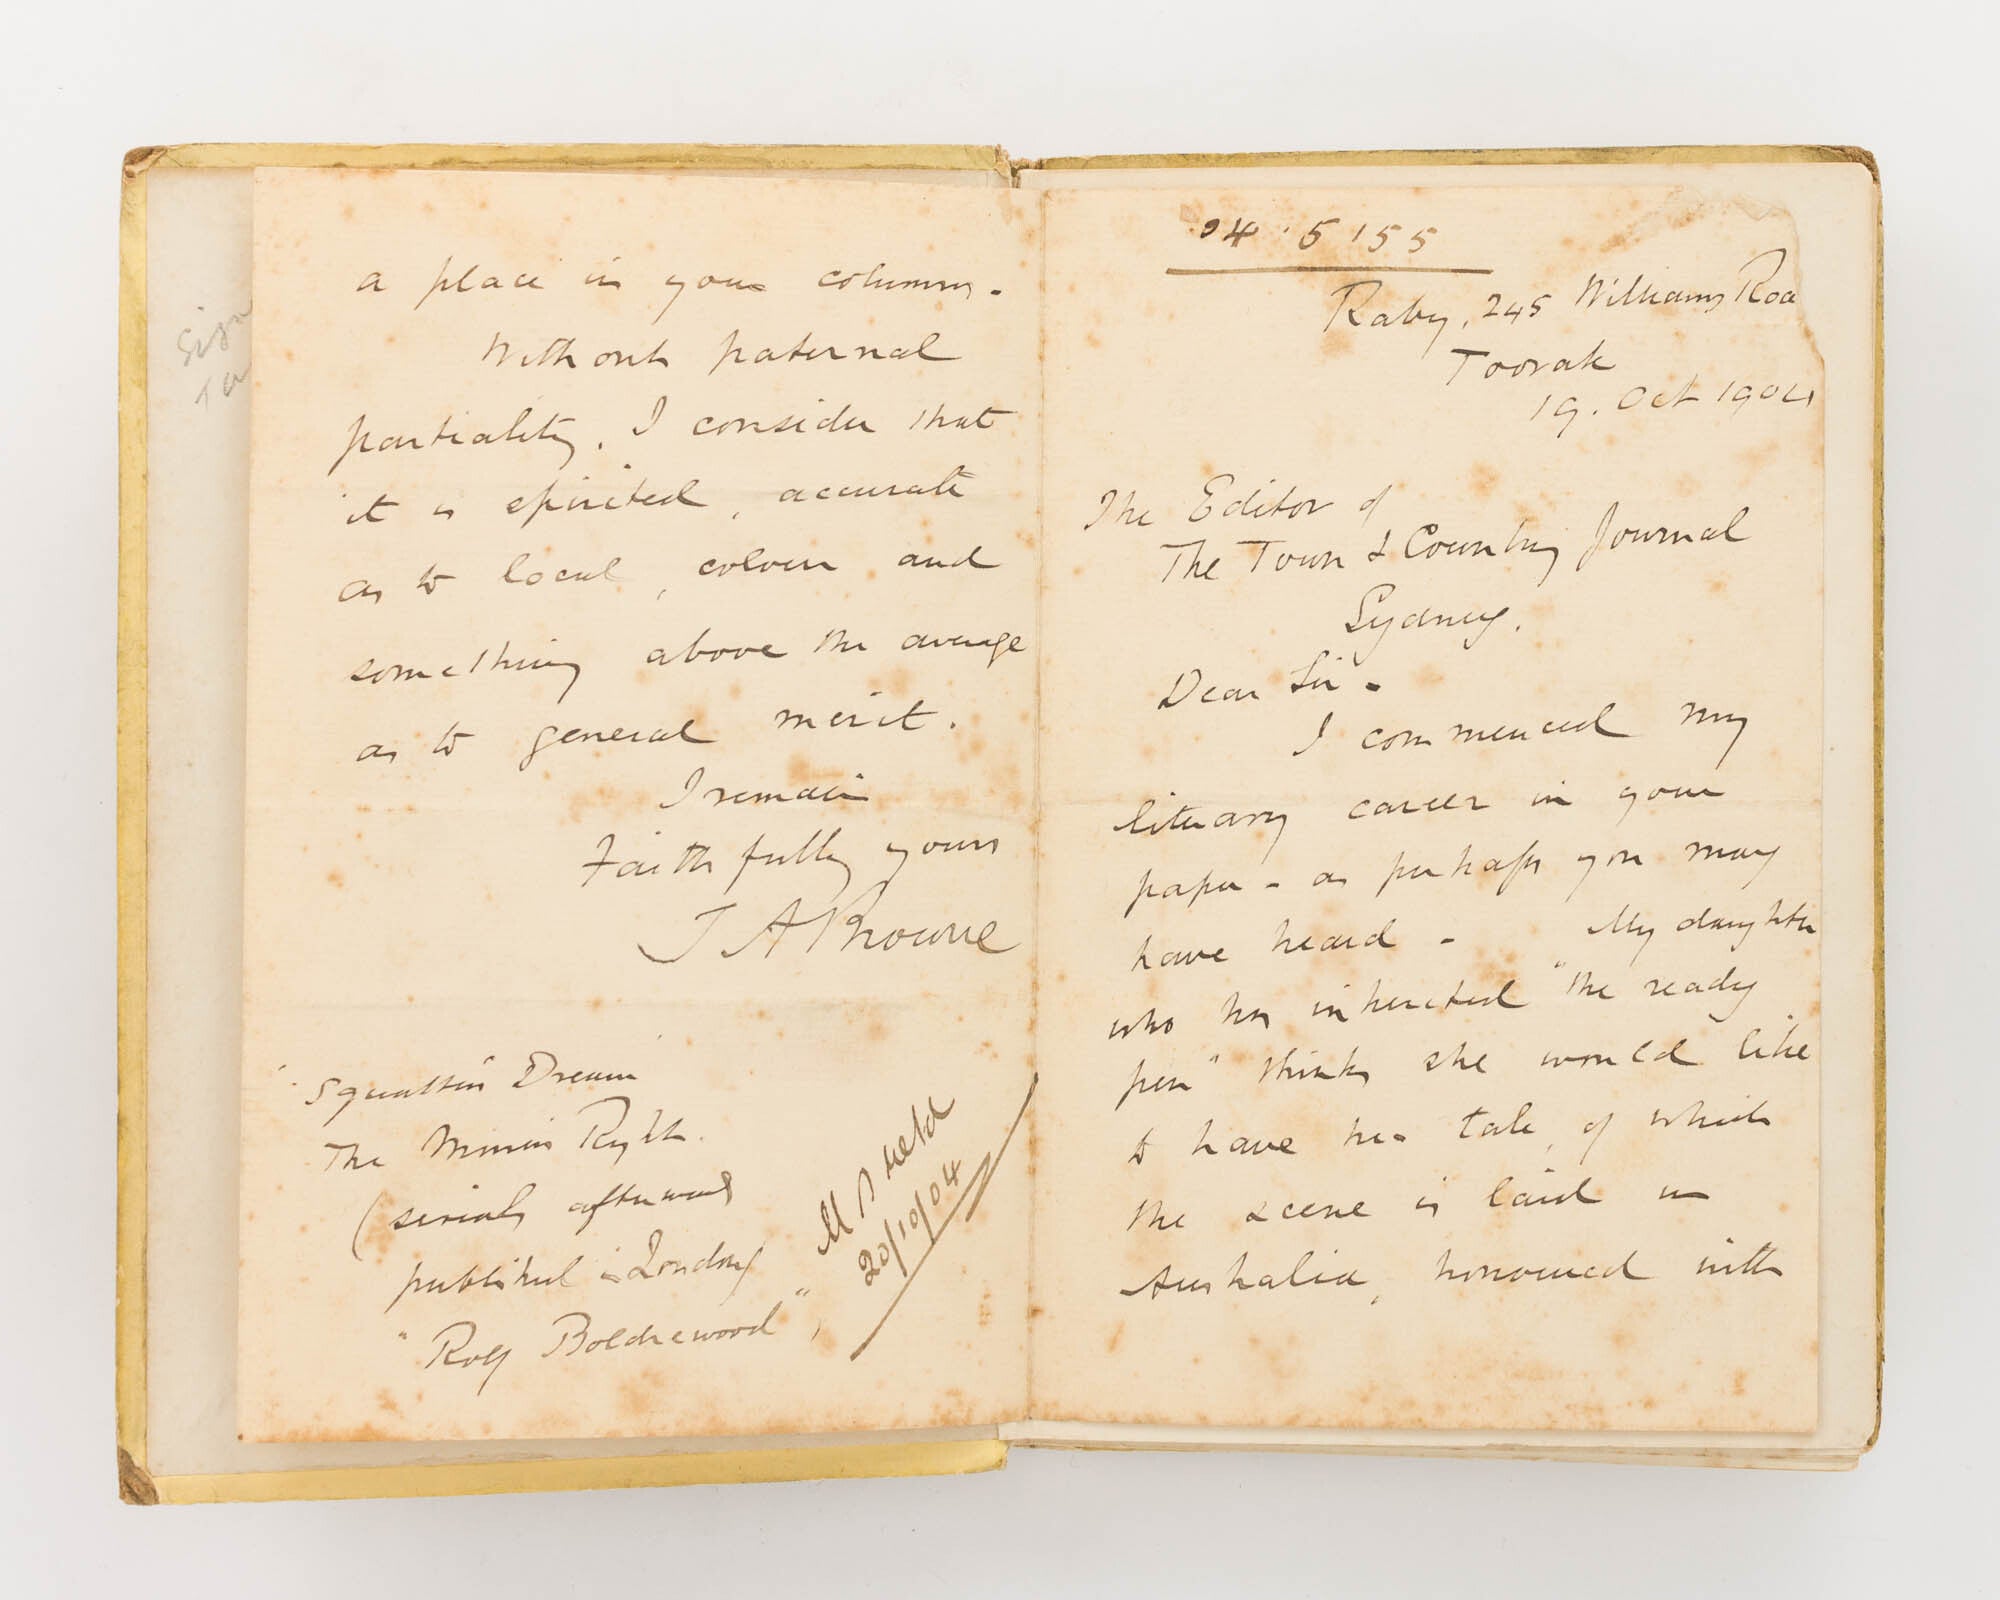 04.5155
Raby, 245 Williams Roa
Toorak
19. Oct 1904
The Editor of
The Town & Country Journal
Sydney.
Dear Sir -
I commenced my
literary career in your
paper - as perhaps you may
have heard - My daughter
who has inherited "the ready
pen" thinks she would like
to have her tale, of which
the scene is laid in
Australia, honoured with
a place in your columns.
Without paternal
partiality, I consider that
it is spirited, accurate
as to local, colour and
something above the average
as to general merit.
I remain
Faithfully yours
J A Browne
Squatter's Dream
The Miner's Right.
(serials afterwards
published in London)
"Rolf Boldrewood",
held
20/10/04